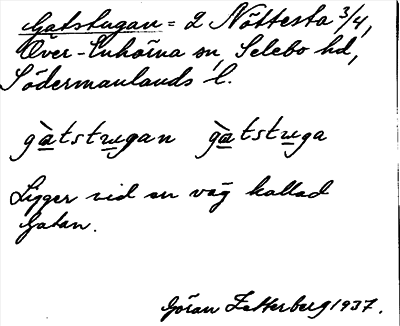 Gatstugan = 2 Nöttesta 3/4,
Över-Enhörna sn, Selebo hd,
Södermanlands l.
gàtstugan gàtstuga
Ligger vid en väg kallad
Gatan.
Göran Zetterberg 1937.